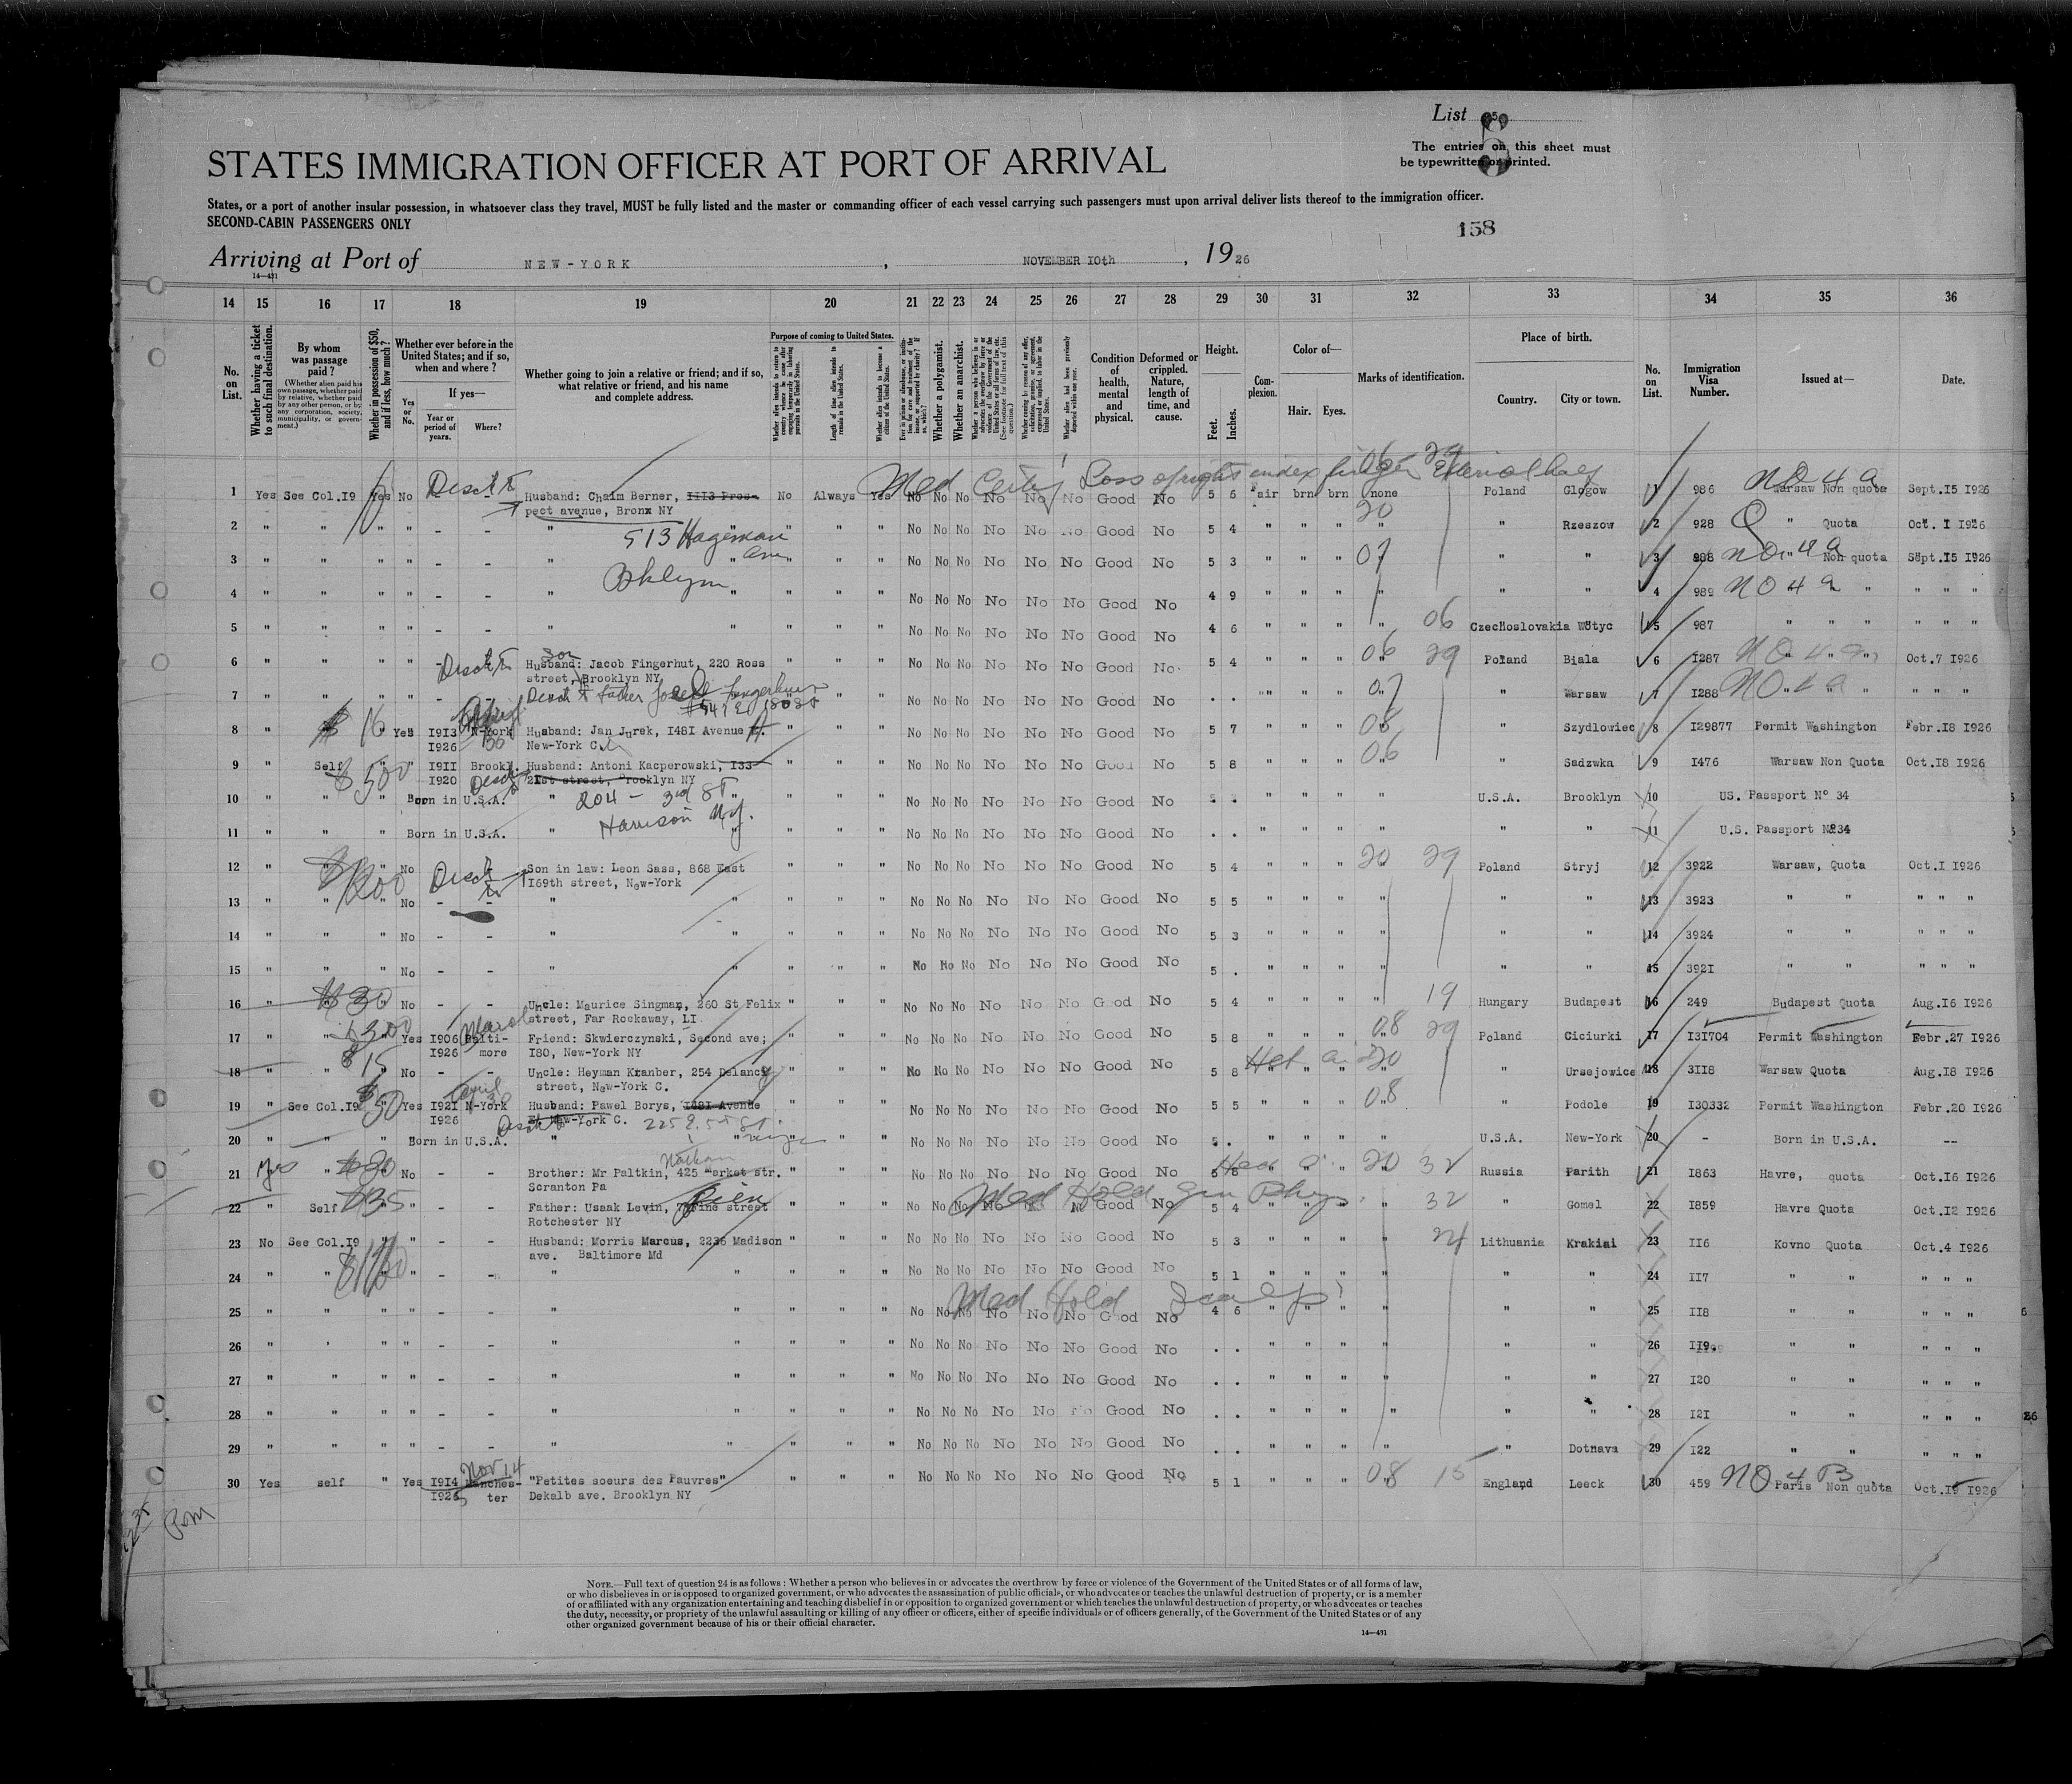 List 5
5
The entries on this sheet must
be typewritten or printed.
STATES IMMIGRATION OFFICER AT PORT OF ARRIVAL
States, or a port of another insular possession, in whatsoever class they travel, MUST be fully listed and the master or commanding officer of each vessel carrying such passengers must upon arrival deliver lists thereof to the immigration officer.
SECOND-CABIN PASSENGERS ONLY
158
Arriving at Port of NEW-YORK, NOVEMBER IOth, 1926
14—431
14 15 16 17 18 19 20 21 22 23 24 25 26 27 28 29 30 31 32 33 34 35 36
No. on List.
Whether having a ticket to such final destination.
By whom was passage paid?
(Whether alien paid his own passage, whether paid by relative, whether paid by any other person, or by any corporation, society, municipality, or government.)
Whether in possession of $50, and if less, how much?
Whether ever before in the United States; and if so, when and where?
Yes or No.
If yes—
Year or period of years.
Where?
Whether going to join a relative or friend; and if so, what relative or friend, and his name and complete address.
Purpose of coming to United States.
Length of time alien intends to remain in the United States.
Whether alien intends to become a citizen of the United States.
Whether a polygamist.
Whether an anarchist.
Condition of health, mental and physical.
Deformed or crippled. Nature, length of time, and cause.
Height.
Feet. Inches.
Complexion.
Color of—
Hair. Eyes.
Marks of identification.
Place of birth.
Country. City or town.
No. on List.
Immigration Visa Number.
Issued at—
Date.
Med Cert Loss of right index finger
1 Yes See Col.I9 Yes No - Husband: Chaim Berner, III3 Pros- No Always Yes No No No No No No Good No 5 6 Fair brn brn none Poland Glogow 1 986 NO 4 a Warsaw Non quota Sept.I5 I926
pect avenue, Bronx NY
2 " " " " - - " " " " " No No No No No No Good No 5 4 " " " " " Rzeszow 2 928 " Quota Oct. I I926
513 Hageman Ave
3 " " " " - - " " " " " No No No No No No Good No 5 3 " " " " " " 3 988 NO 4 a " Non quota Sept.I5 I926
Bklyn
4 " " " " - - " " " " " No No No No No No Good No 4 9 " " " " " " 4 989 NO 4 a " " " " "
5 " " " " - - " " " " " No No No No No No Good No 4 6 " " " " 06 Czechoslovakia Wötyc 5 987 " " " " " "
6 " " " " - Husband: Jacob Fingerhut, 220 Ross " " " No No No No No No Good No 5 4 " " " " 06 29 Poland Biala 6 I287 NO 4 a " " Oct.7 I926
son
street, Brooklyn NY
7 " " " " - - " " " No No No No No No Good No . . " " " " 07 " Warsaw 7 I288 NO 4 a " " " " " "
8 " " Yes I9I3 N-York Husband: Jan Jurek, I48I Avenue A. " " " No No No No No No Good No 5 7 " " " " 08 " Szydlowiec 8 I29877 Permit Washington Febr.I8 I926
I926 New-York C.
9 " Self $500 " " I9II Brookl. Husband: Antoni Kacperowski, I33 " " " No No No No No No Good No 5 8 " " " " 06 " Sadzwka 9 I476 Warsaw Non Quota Oct.I8 I926
I920 2Ist street, Brooklyn NY
10 " " " Born in U.S.A. " " " " No No No No No No Good No " " " " U.S.A. Brooklyn 10 US. Passport N° 34
204 - 3rd St
Harrison NJ.
11 " " " Born in U.S.A. " " " " " No No No No No No Good No . . " " " " " " 11 U.S. Passport N°34
12 " " " No - Son in law: Leon Sass, 868 East " " " No No No No No No Good No 5 4 " " " " 20 29 Poland Stryj 12 3922 Warsaw, Quota Oct.I I926
I69th street, New-York
13 " " " No - - " " " " " No No No No No No Good No 5 5 " " " " " " 13 3923 " " " " "
14 " " " No - - " " " " " No No No No No No Good No 5 3 " " " " " " 14 3924 " " " " "
15 " " " No - - " " " " " No No No No No No Good No 5 . " " " " " " 15 392I " " " " "
16 " $30 " No - - Uncle: Maurice Singman, 260 St Felix " " " No No No No No No Good No 5 4 " " " " 19 Hungary Budapest 16 249 Budapest Quota Aug.I6 I926
street, Far Rockaway, LI
17 " $300 Yes I906 Balti- Friend: Skwierczynski, Second ave; " " " No No No No No No Good No 5 8 " " " " 08 29 Poland Ciciurki 17 I3I704 Permit Washington Febr.27 I926
I926 more I80, New-York NY
18 " $15 " No - - Uncle: Heyman Kranber, 254 Delancy " " " No No No No No No Good No 5 8 " " " 20 " Ursejowice 18 3II8 Warsaw Quota Aug.I8 I926
street, New-York C.
19 " See Col.I9 $50 Yes I92I N-York Husband: Pawel Borys, I48I Avenue " " " No No No No No No Good No 5 5 " " " " 08 " Podole 19 I30332 Permit Washington Febr.20 I926
I926 St New-York C. 225 E. 5th St.
20 " " " Born in U.S.A. " " " " " No No No No No No Good No 5 . " " " " U.S.A. New-York 20 - Born in U.S.A. --
Nathan
21 Yes " $30 No - - Brother: Mr Paltkin, 425 Market str. " " " No No No No No No Good No 5 5 " " " " 20 32 Russia Parith 21 I863 Havre, quota Oct.I6 I926
Scranton Pa
Med Hold Gen Phys.
22 " Self $35 " " - - Father: Usaak Levin, 7 Fine street " " " No No No No No No Good No 5 4 " " " " 32 " Gomel 22 I859 Havre Quota Oct.I2 I926
Rotchester NY
23 No See Col.I9 " " - - Husband: Morris Marcus, 2236 Madison " " " No No No No No No Good No 5 3 " " " " 24 Lithuania Krakiai 23 II6 Kovno Quota Oct.4 I926
ave. Baltimore Md
24 " " " " - - " " " " " No No No No No No Good No 5 1 " " " " " " 24 II7 " " " " "
Med Hold Scalp
25 " " " " - - " " " " " No No No No No No Good No 4 6 " " " " " " 25 II8 " " " " "
26 " ' " " - - " " " " " No No No No No No Good No . . " " " " " " 26 II9 " " " " "
27 " " " " - - " " " " " No No No No No No Good No . . " " " " " " 27 I20 " " " " "
28 " " " " - - " " " " " No No No No No No Good No . . " " " " " " 28 I2I " " " " "
29 " " " " - - " " " " " No No No No No No Good No . . " " " " " Dotnava 29 I22 " " " " "
Nov 14
30 Yes self " Yes I9I4 Manches- "Petites soeurs des Pauvres" " " " No No No No No No Good No 5 1 " " " " 08 15 England Leeck 30 459 NO 4 B Paris Non quota Oct.I5 I926
I926 ter Dekalb ave. Brooklyn NY
NOTE.—Full text of question 24 is as follows: Whether a person who believes in or advocates the overthrow by force or violence of the Government of the United States or of all forms of law,
or who disbelieves in or is opposed to organized government, or who advocates the assassination of public officials, or who advocates or teaches the unlawful destruction of property, or is a member
of or affiliated with any organization entertaining and teaching disbelief in or opposition to organized government or which teaches the unlawful destruction of property, or who advocates or teaches
the duty, necessity, or propriety of the unlawful assaulting or killing of any officer or officers, either of specific individuals or of officers generally, of the Government of the United States or of any
other organized government because of his or their official character.
14—431